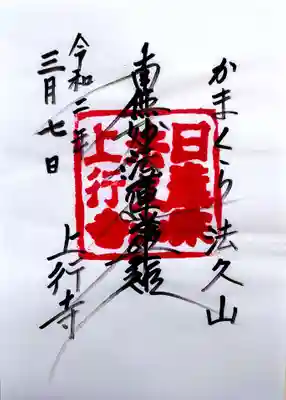 かまくら 法久山
南無妙法蓮華経
令和二年
三月七日
上行寺
日蓮宗
上行寺